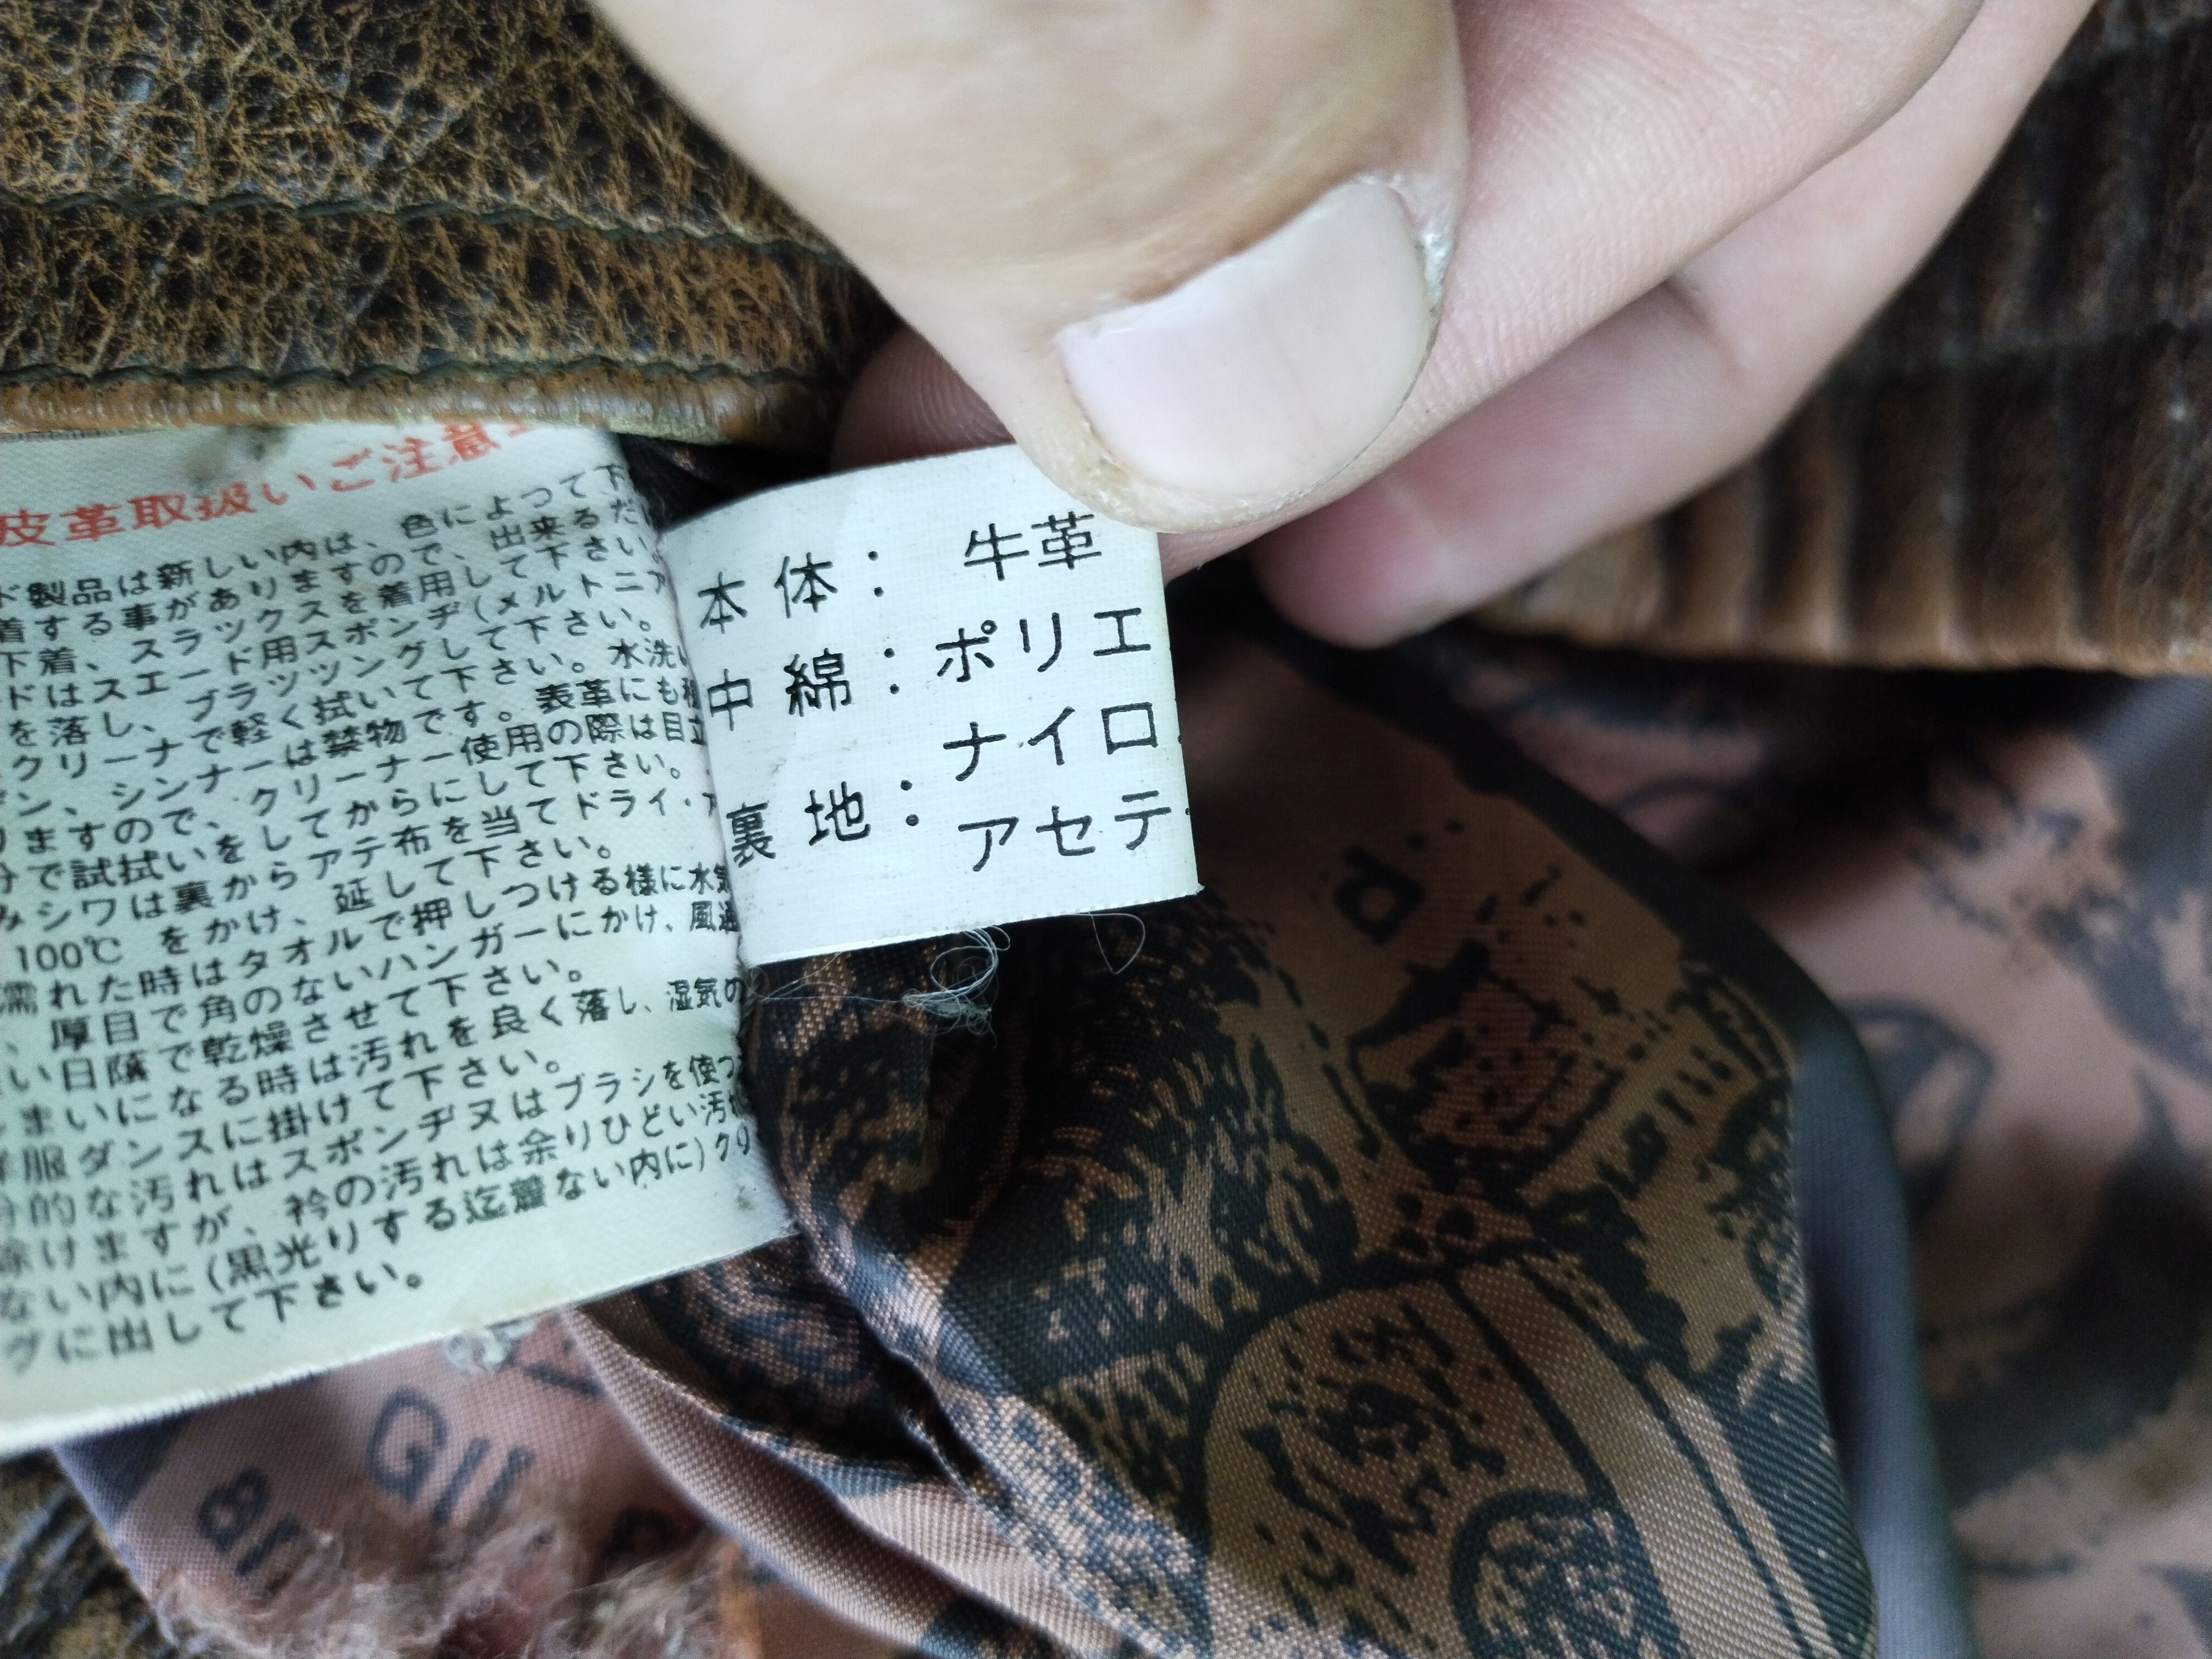 皮革取扱いご注意
製品は新しい内は、色によって下
着する事がありますので、出来るだ
下着、スラックスを着用して下さい。
ドはスエード用スポンヂ(メルトニア
を落し、ブラッツングして下さい。
クリーナで軽く拭いて下さい。水洗い
ン、シンナーは禁物です。表革にも
りますので、クリーナー使用の際は目立
分で試拭いをしてからにして下さい。
みシワは裏からアテ布を当てドライ・ア
100℃ をかけ、延して下さい。
濡れた時はタオルで押しつける様に水気
、厚目で角のないハンガーにかけ、風通
い日蔭で乾燥させて下さい。
しまいになる時は汚れを良く落し、湿気の
洋服ダンスに掛けて下さい。
分的な汚れはスポンヂ又はブラシを使っ
除けますが、衿の汚れは余りひどい汚れ
ない内に(黒光りする迄着ない内に)クリ
グに出して下さい。
本体: 牛革
中綿: ポリエ
ナイロ
裏地: アセテ